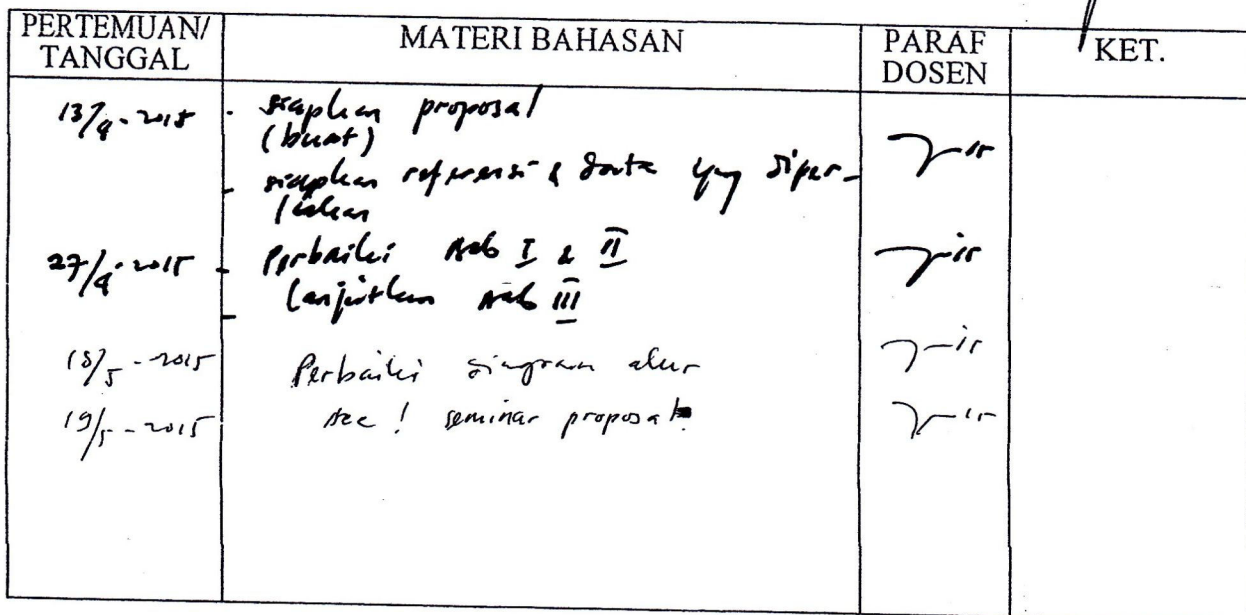 PERTEMUAN/
TANGGAL
MATERI BAHASAN
PARAF
DOSEN
KET.
13/4-2015 - siapkan proposal
(buat)
- siapkan referensi & data yng diper-
lukan
27/4-2015 - Perbaiki Bab I & II
- lanjutkan Bab III
18/5-2015 Perbaiki diagram alur
19/5-2015 Acc! seminar proposal